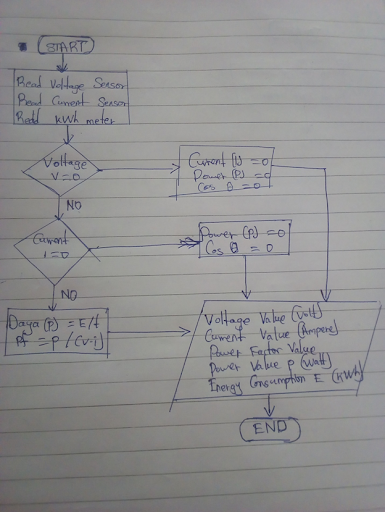 START
Read Voltage Sensor
Read Current Sensor
Read kWh meter
Voltage
V=0
Current (I) =0
Power (P) =0
Cos θ =0
NO
Current
I=0
Power (P) =0
Cos θ =0
NO
Daya (P) = E/t
Pf = P/(V·i)
Voltage Value (Volt)
Current Value (Ampere)
Power Factor Value
Power Value P (Watt)
Energy Consumption E (kWh)
END